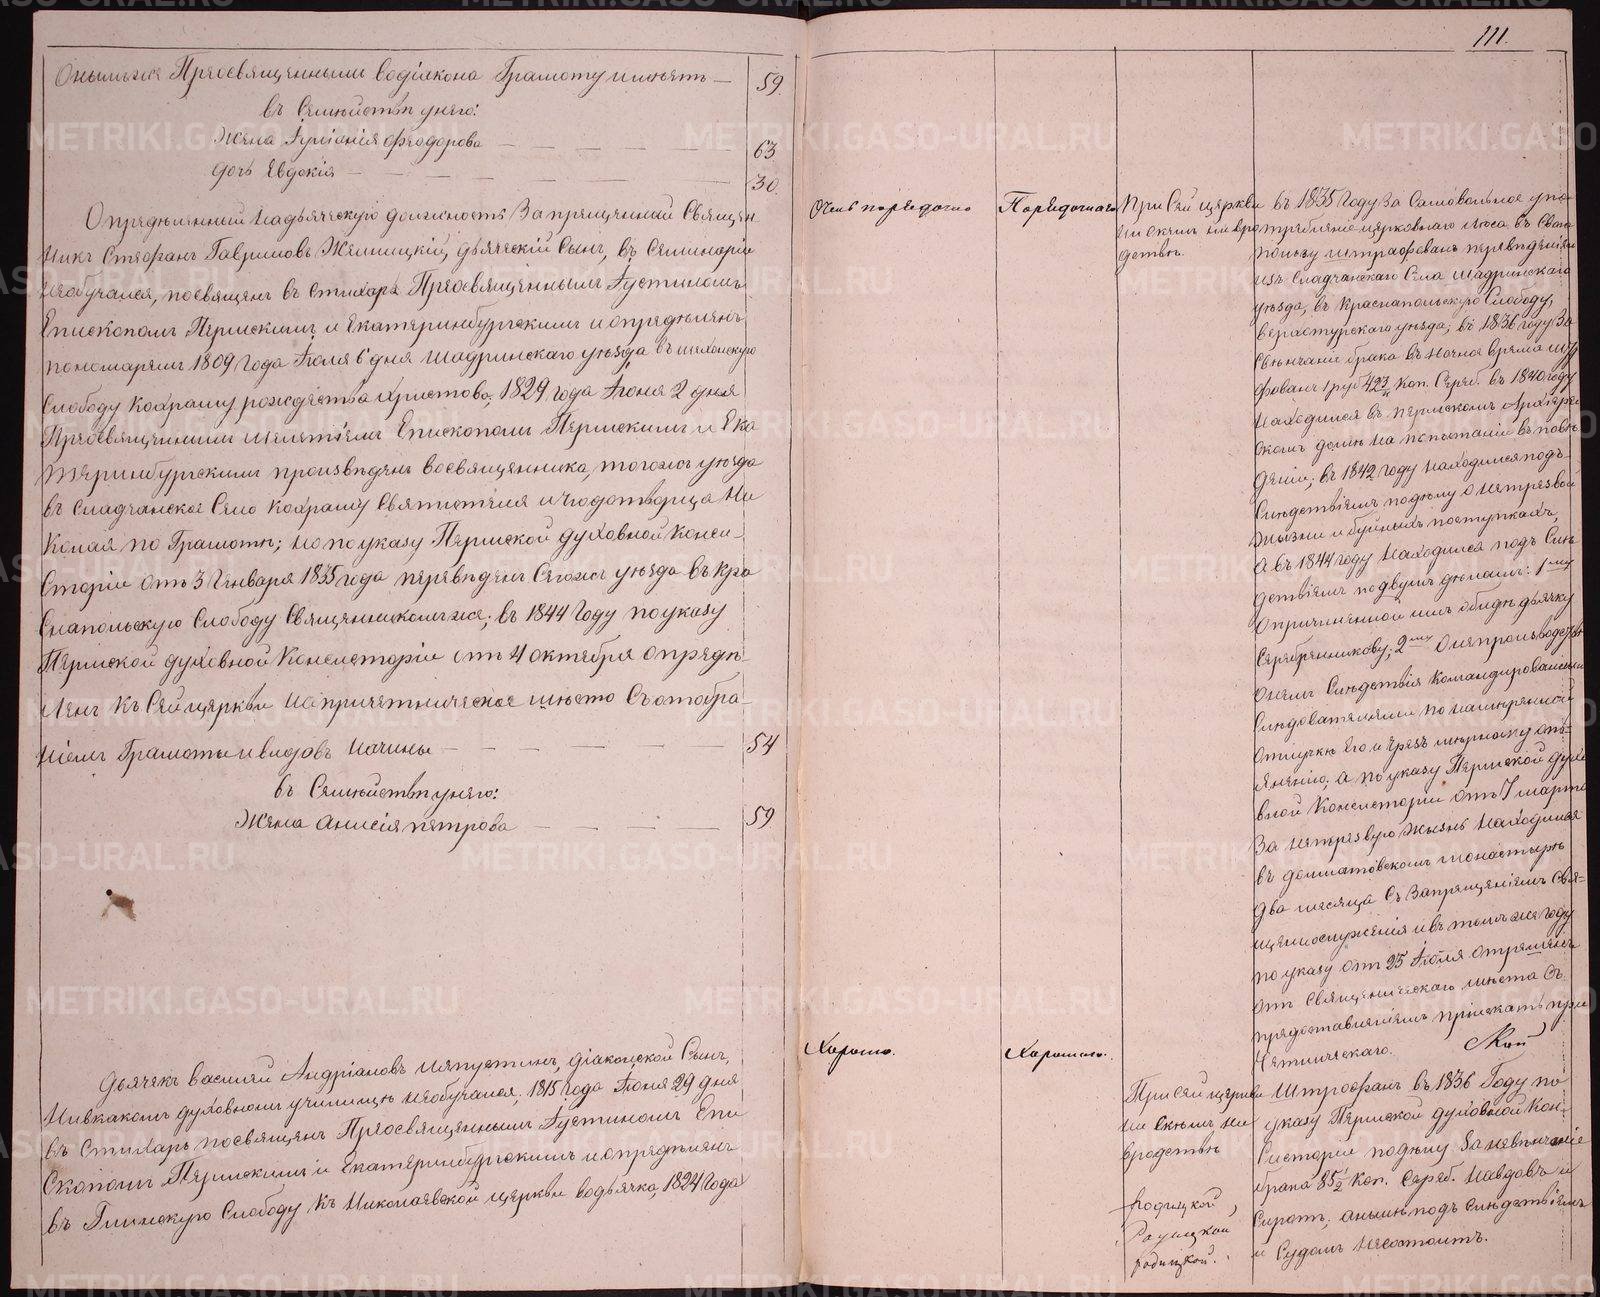 111.
Онымъ же Преосвященнымъ во діакона Грамоту имѣетъ — 59.
въ Семействѣ у него:
Жена Іуліанія Феодорова — 63
дочь Евдокія — 30
Опредѣленный на дьяческую должность Запрещенный Священ
никъ Стефанъ Гавриловъ Желницкій, дьяческій Сынъ, въ Семинаріи
необучался, посвященъ въ стихарь Преосвященнымъ Іустиномъ
Епископомъ Пермскимъ и Екатеринбургскимъ и опредѣленъ
пономаремъ 1809 года Іюля 6 дня Шадринскаго уѣзда въ
Слободу ко храму рождества христова, 1829 года Іюня 2 дня
Преосвященнымъ Мелетіемъ Епископомъ Пермскимъ и Ека
теринбургскимъ произведенъ во священника, того же уѣзда
въ Сладчанское Село ко храму Святителя и Чюдотворца Ни
колая по Грамотѣ; но по указу Пермской духовной Конси-
сторіи отъ 3 Генваря 1835 года переведенъ Сего же уѣзда въ Кра
снапольскую Слободу Священникомъ же; въ 1844 Году по указу
Пермской духовной Консисторіи отъ 4 октября опредѣ-
ленъ къ Сей церкви на причетническое мѣсто Съ отобра-
ніемъ Грамоты и видовъ на чины — 54
въ Семействѣ у него:
Жена Анисія Петрова — 59
Дьячекъ Василій Андріановъ Ляпустинъ, діаконской Сынъ,
ни въ какомъ духовномъ училищѣ необучался, 1815 года Іюня 29 дня
въ Стихарь посвященъ Преосвященнымъ Іустиномъ Епи
скопомъ Пермскимъ и Екатеринбургскимъ и опредѣленъ
въ Глинскую Слободу къ Николаевской церкви во дьячка, 1824 года
Очень порядочно
Хорошо.
Порядочнаго
Хорошаго.
При Сей церкви
ни съ кемъ не въ ро
дствѣ.
При Сей церкви
ни съ кемъ не
въ родствѣ
Родицкой,
родицкой.
въ 1835 Году за Самовольное упо
требленіе церковнаго лѣса въ Свою
пользу штрафованъ переведеніемъ
изъ Сладчанскаго Села Шадринскаго
уѣзда, въ Краснапольскую Слободу,
Верхотурскаго уѣзда; въ 1836 году За
Свѣнчаніе брака въ ночное время штра
фованъ 1 руб. Коп. Сереб. въ 1840 году
находился въ Пермскомъ Архіерей
скомъ домѣ на испытаніи въ пове
деніи; въ 1842 году находился подъ
Слѣдствіемъ по дѣлу о нетрезвой
жизни и буйныхъ поступкахъ,
а въ 1844 году находился подъ Слѣ
дствіемъ по двумъ дѣламъ: 1му
о причиненной имъ обидѣ дьячку
Серебрянникову; 2му о непроизводствѣ
о немъ Слѣдствія командированными
Слѣдователями по намѣренной
отлучкѣ его и чрезъ мѣрному опь
яненію; а по указу Пермской духо
вной Консисторіи отъ 7 марта
За нетрезвую жизнь находился
въ долматовскомъ монастырѣ
два месяца Съ Запрещеніемъ Свя-
щеннослуженія и въ томъ же году
по указу отъ 25 Іюля отрѣшенъ
отъ Священическаго мѣста Съ
предоставленіемъ пріискать при
четническаго.
Штрафанъ въ 1836 Году по
указу Пермской духовной Кон-
систоріи по дѣлу За невѣнчаніе
брака 85½ коп. Сереб. на вдовъ и
Сиротъ; а нынѣ подъ Слѣдствіемъ
и Судомъ несостоитъ.
METRIKI.GASO-URAL.RU